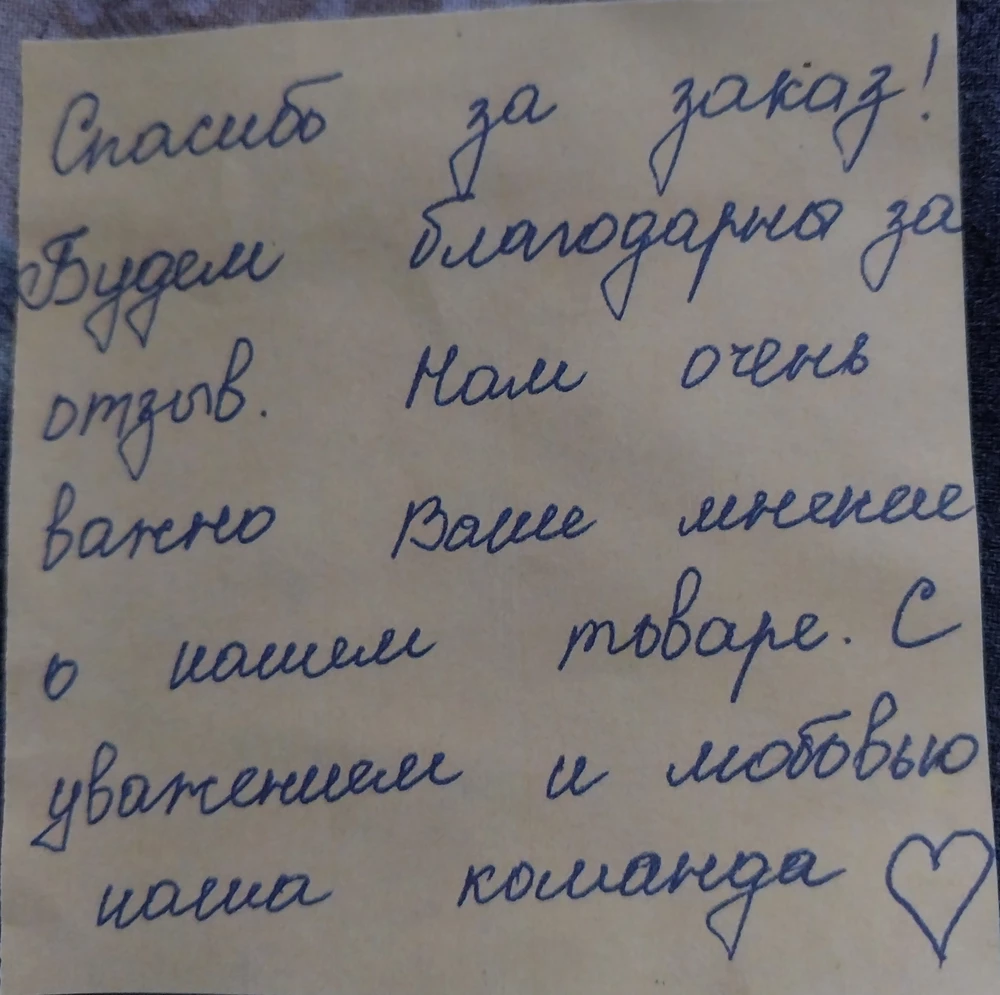 Спасибо за заказ!
Будем благодарны за
отзыв. Нам очень
важно Ваше мнение
о нашем товаре. С
уважением и любовью
наша команда ♡